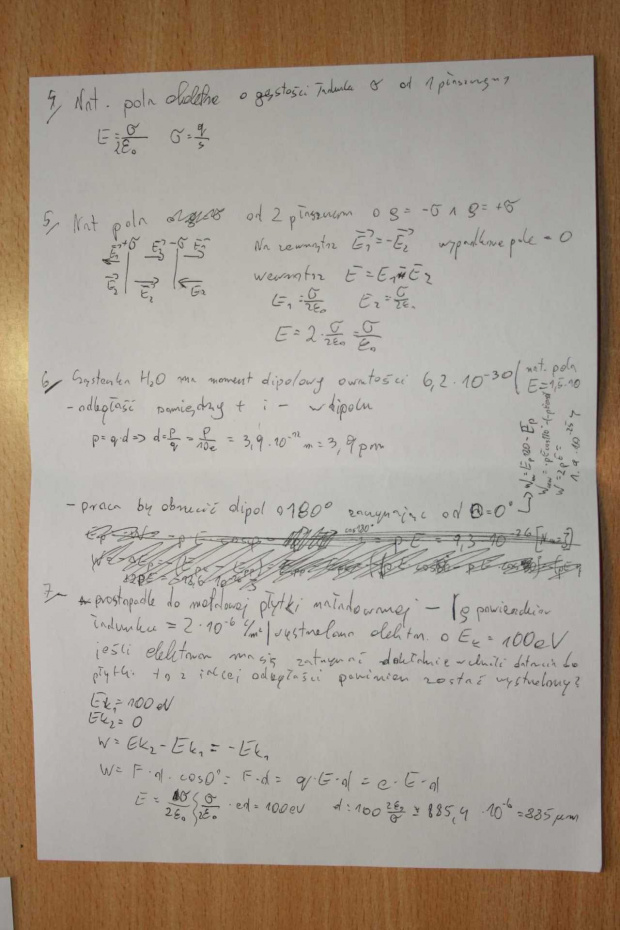 4, Nat. pola o gęstości ładunku σ od 1 płaszczyzny
E = σ/2ε₀ σ = q/s
5, Nat pola od 2 płaszczyzn o ρ = -σ ∧ ρ = +σ
+σ E₂ -σ Na zewnątrz E₁ = -E₂ wypadkowe pole = 0
E₂ E₂ E₂ wewnątrz E = E₁ + E₂
E₁ = σ/2ε₀ E₂ = σ/2ε₀
E = 2 · σ/2ε₀ = σ/ε₀
6, Cząsteczka H₂O ma moment dipolowy o wartości 6,2 · 10⁻³⁰ ( nat. pola
- odległość pomiędzy + i - w dipolu
p = q · d => d = p/q = p/10e = 3,9 · 10⁻¹² m = 3,9 pm
- praca by obrócić dipol o 180° zaczynając od θ = 0°
7, prostopadle do metalowej płytki naładowanej - ρ powierzchn
ładunku = 2 · 10⁻⁶ C/m² | wystrzelono elektron o Ek = 100 eV
jeśli elektron ma się zatrzymać dokładnie w chwili dotarcia do
płytki to z jakiej odległości powinien zostać wystrzelony?
Ek₁ = 100 eV
Ek₂ = 0
W = Ek₂ - Ek₁ = -Ek₁
W = F · d · cos0° = F · d = q · E · d = e · E · d
E = σ/2ε₀ { σ/2ε₀ · ed = 100 eV d = 100 2ε₀/σ ≈ 885,4 · 10⁻⁶ = 885 μm